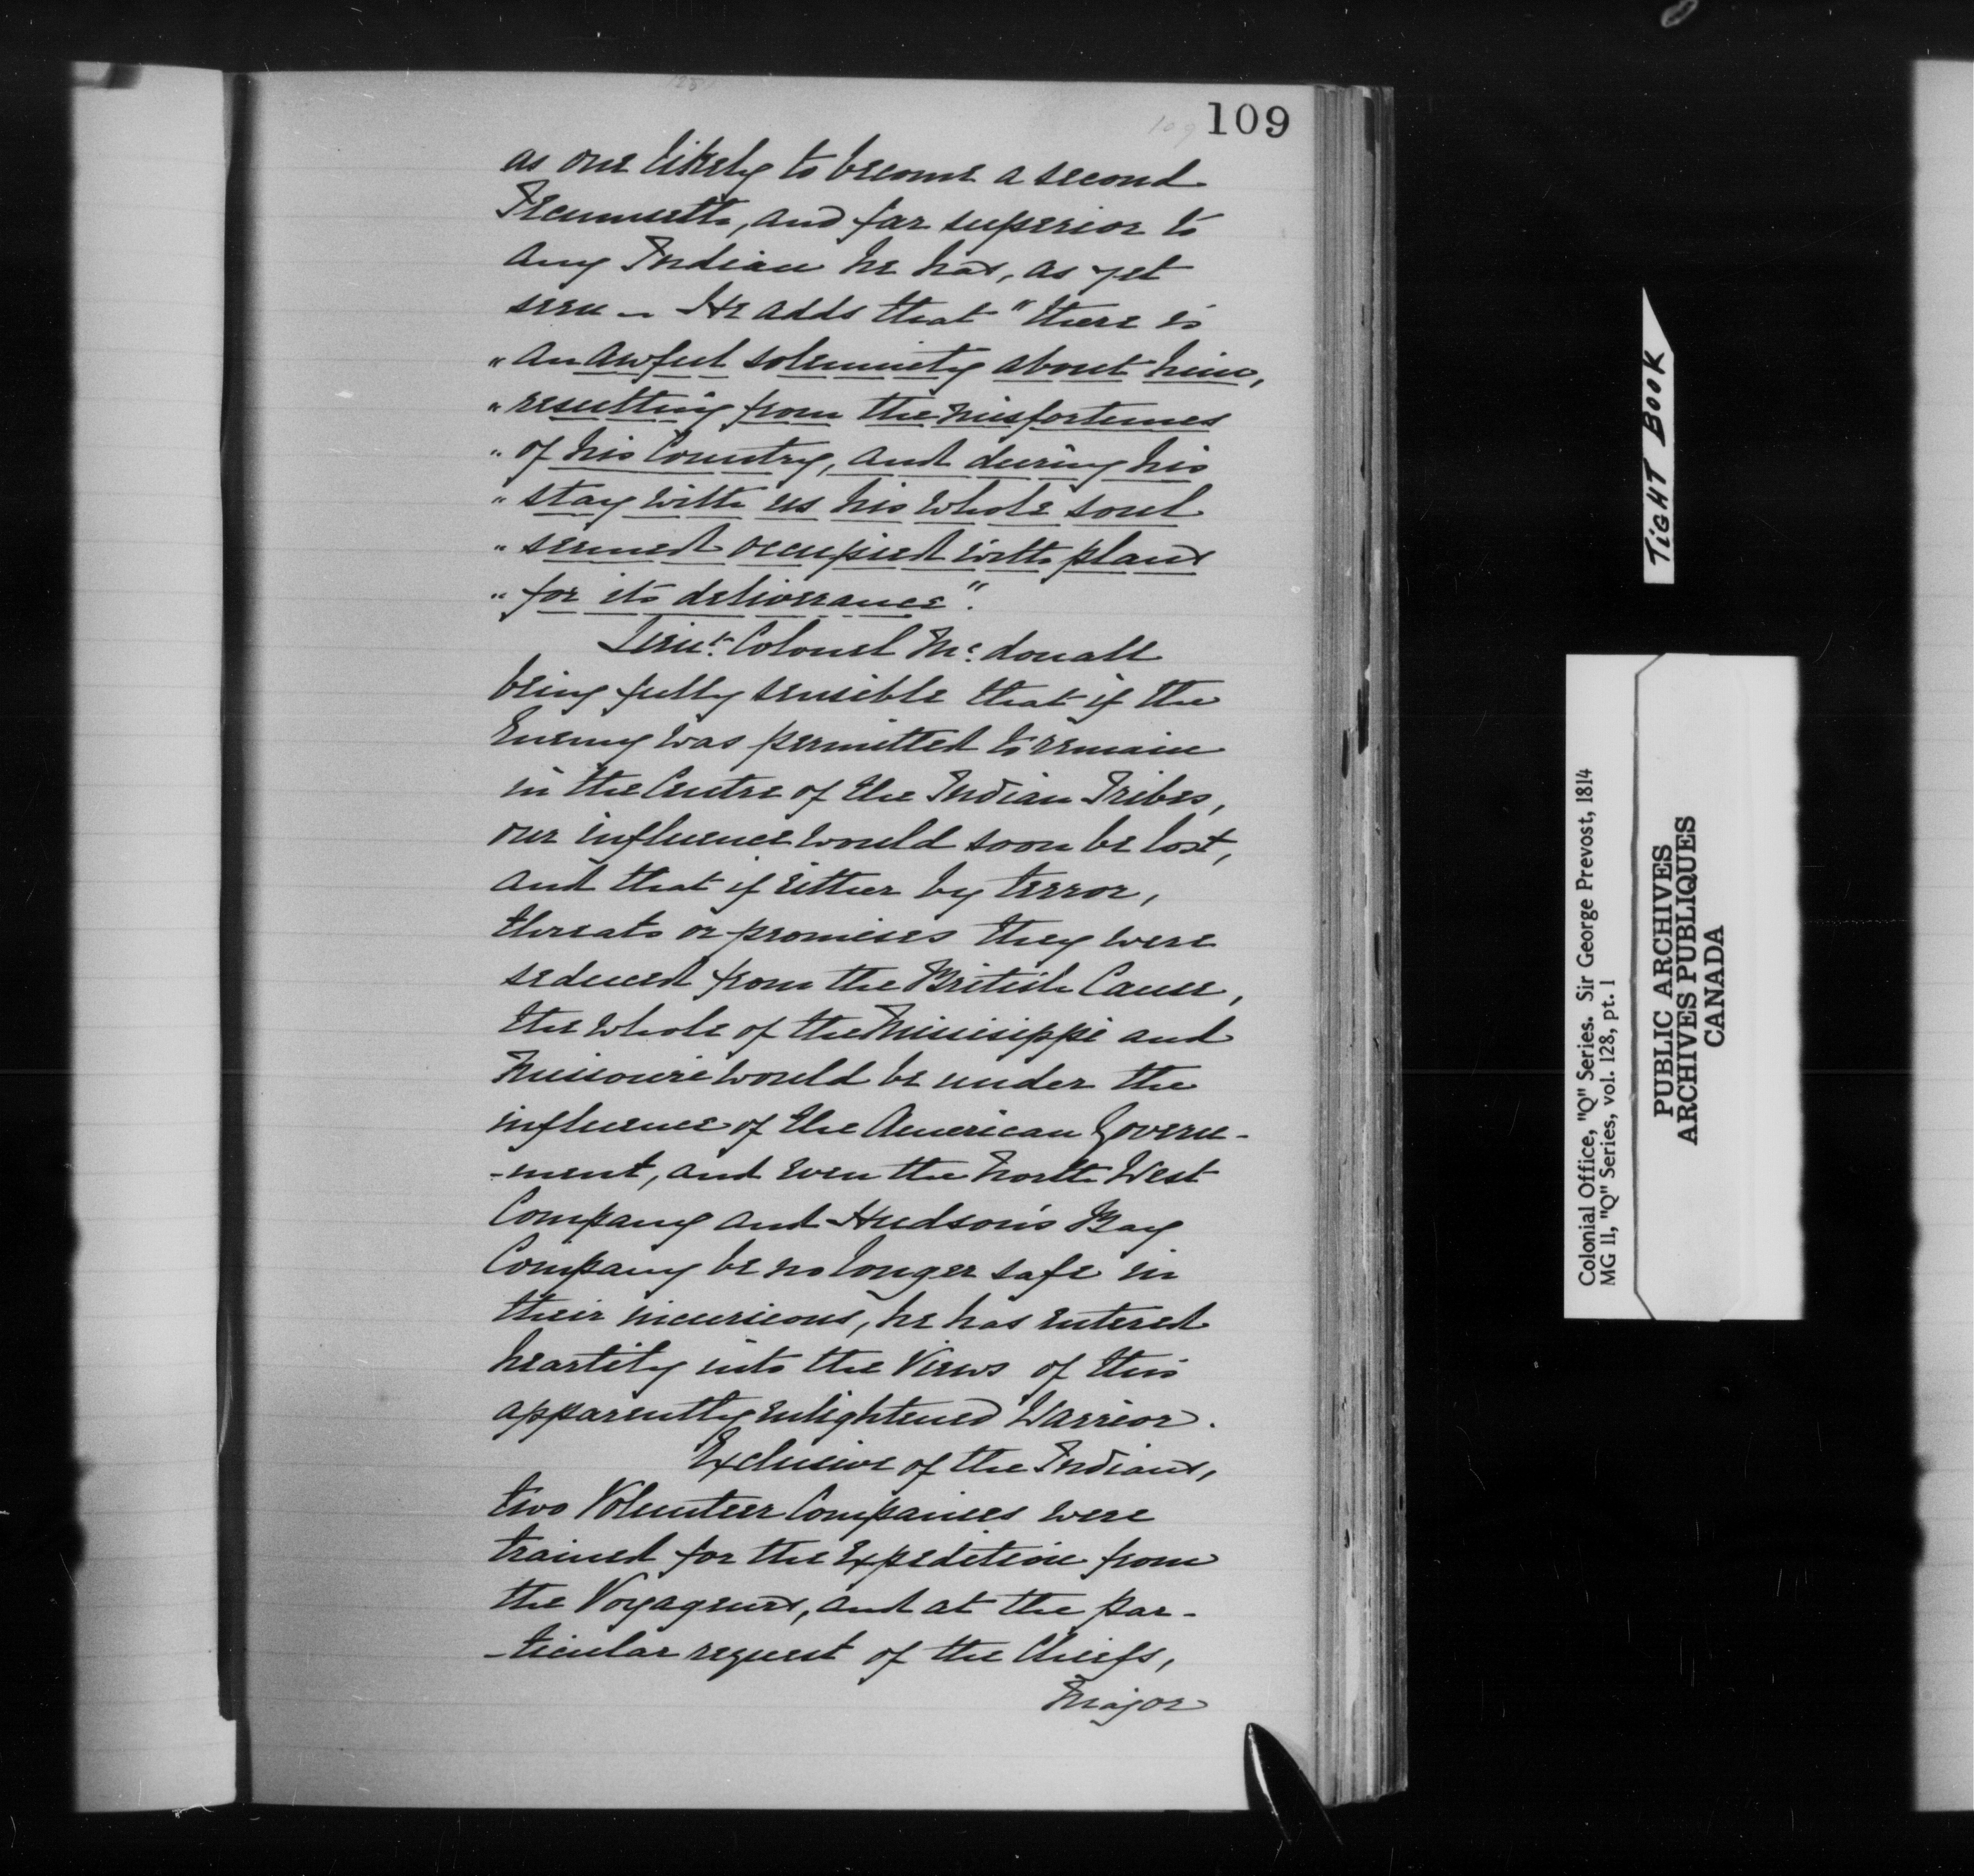 109
as one likely to become a second
Tecumseth, and far superior to
any Indian he has, as yet
seen - He adds that "there is
" an awful solemnity about him,
" resulting from the misfortunes
" of his Country, and during his
" stay with us his whole soul
" seemed occupied with plans
" for its deliverance".
Lieut. Colonel Mc.douall
being fully sensible that if the
Enemy was permitted to remain
in the Centre of the Indian Tribes,
our influence would soon be lost,
and that if either by terror,
threats or promises they were
seduced from the British Cause,
the whole of the Missisippi and
Missouri would be under the
influence of the American Govern-
-ment, and even the North West
Company and Hudson's Bay
Company be no longer safe in
their incursions, he has entered
heartily into the Views of this
apparently enlightened Warrior.
Exclusive of the Indians,
two Volunteer Companies were
trained for the Expedition from
the Voyageurs, and at the par-
-ticular request of the Chiefs,
Major
TIGHT BOOK
Colonial Office, "Q" Series. Sir George Prevost, 1814
MG 11, "Q" Series, vol. 128, pt. 1
PUBLIC ARCHIVES
ARCHIVES PUBLIQUES
CANADA